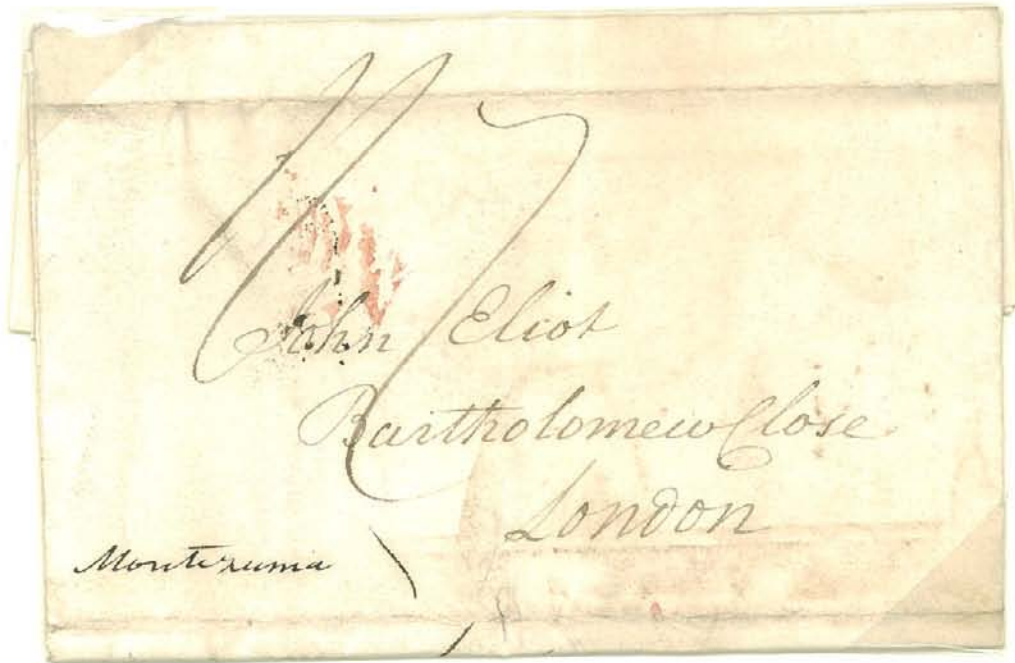 John Eliot
Bartholomew Close
London
Montezuma